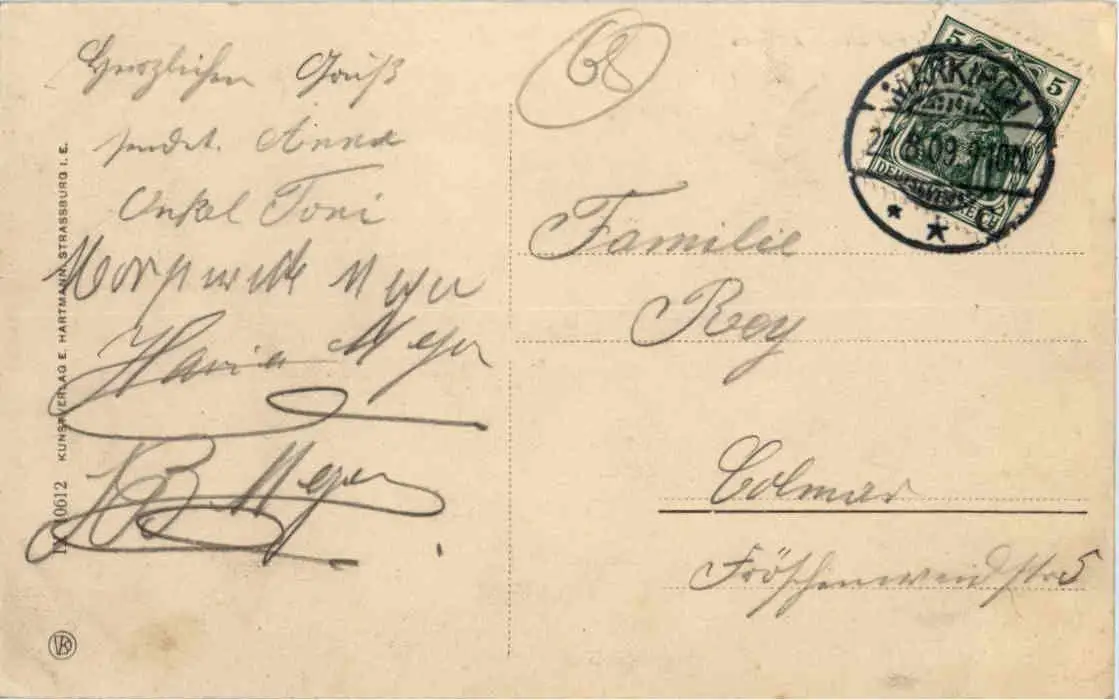 Herzlichen Gruß
sendet. Anna
Onkel Toni
Marguerite Meyer
Maria Meyer
B Meyer
KUNSTVERLAG E. HARTMANN, STRASSBURG I. E.
10612
68
5 5
MARKIRCH
22.8.09.9-10N
DEUTSCHES REICH
Familie
Rey
Colmar
Fröschenweidstr 5